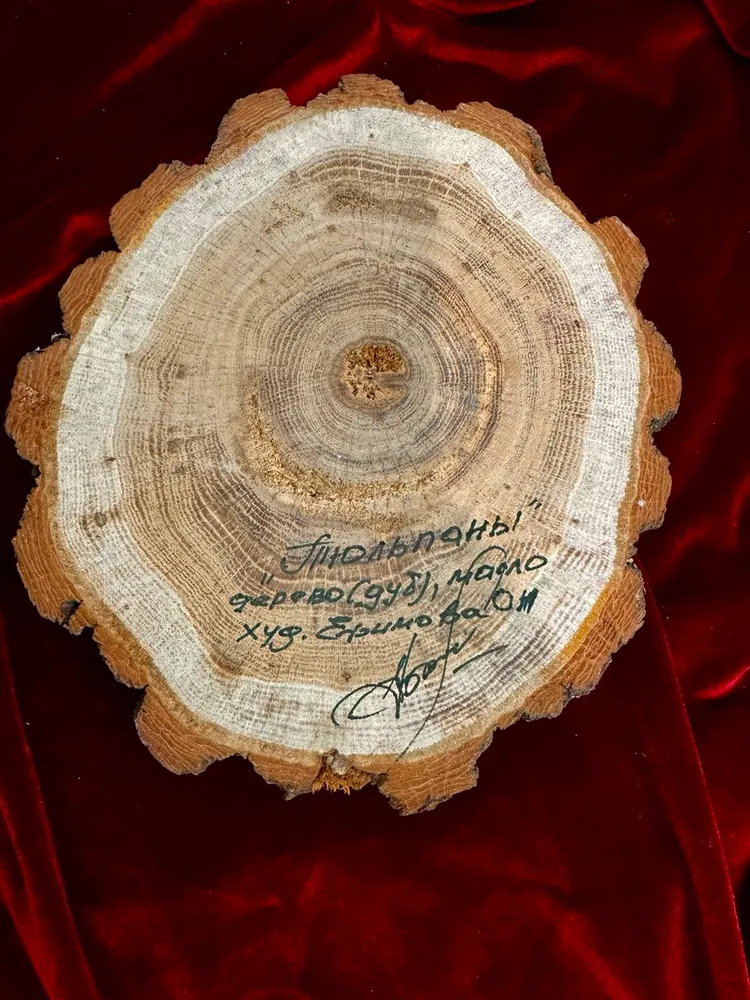 "Тюльпаны"
дерево (дуб), масло
худ. Еримова ОЖ